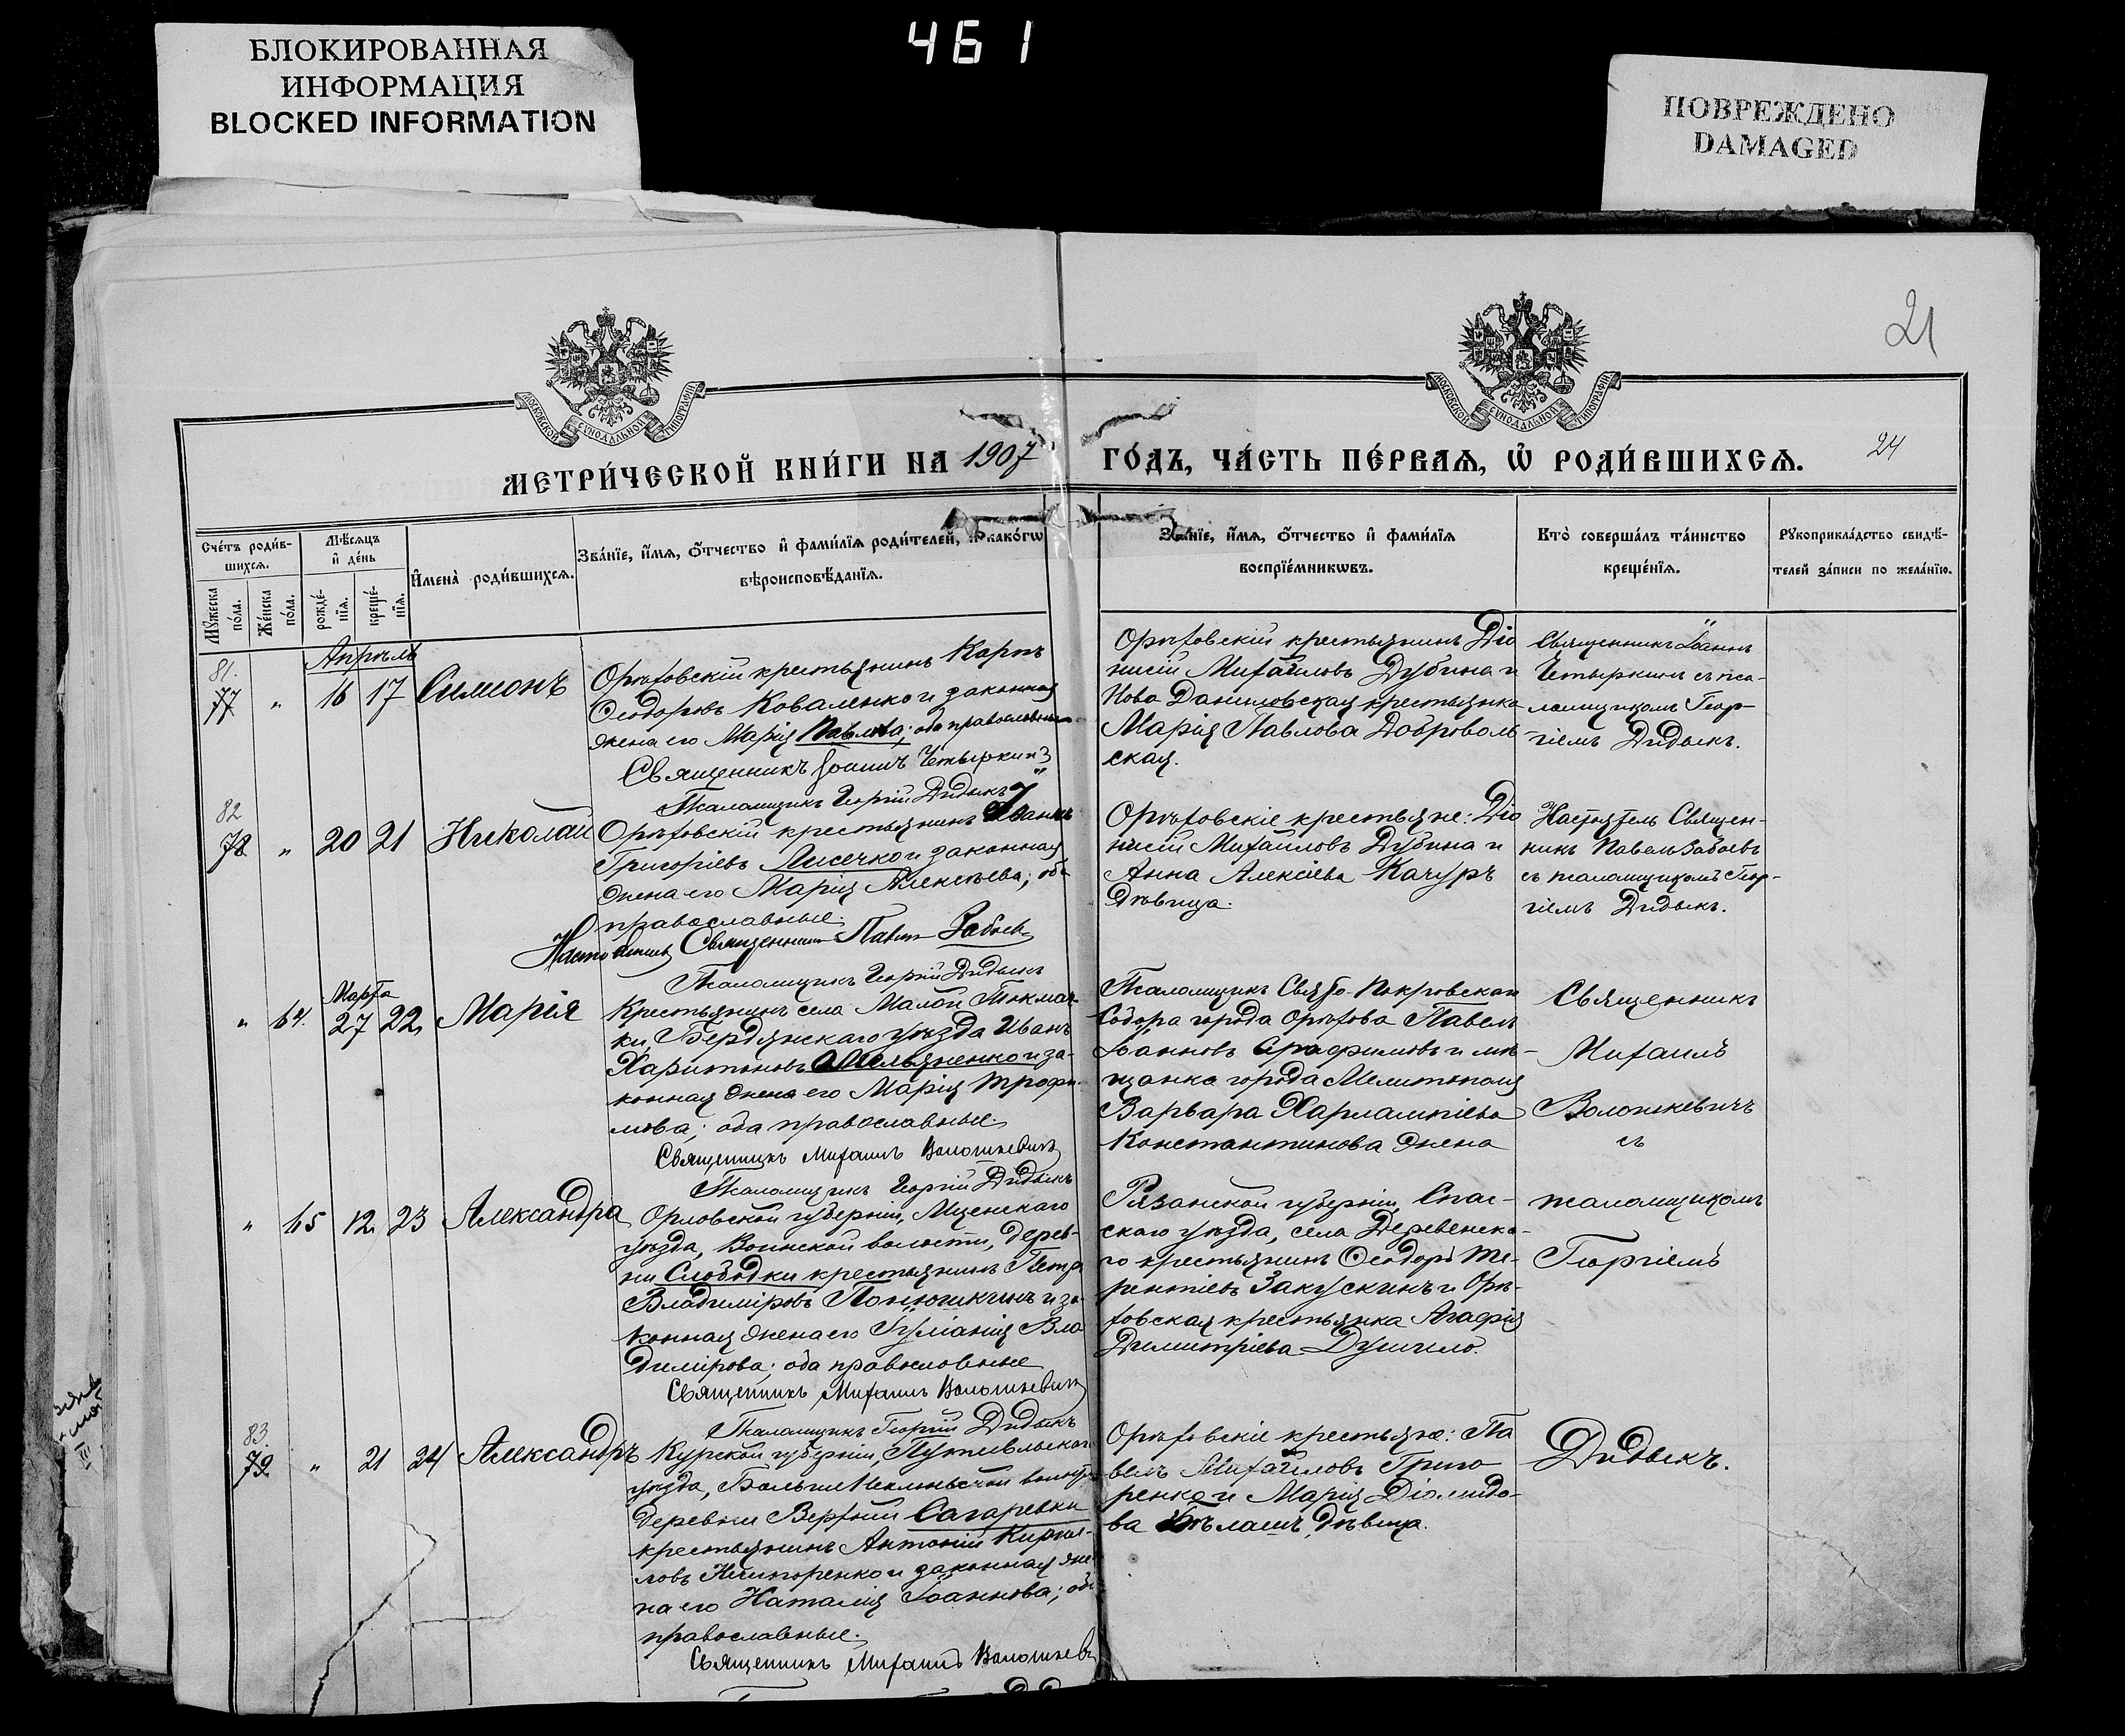 461
БЛОКИРОВАННАЯ
ИНФОРМАЦИЯ
BLOCKED INFORMATION
ПОВРЕЖДЕНО
DAMAGED
21
МОСКОВСКОЙ СѴНОДАЛЬНОЙ ТИПОГРАФІИ
МОСКОВСКОЙ СѴНОДАЛЬНОЙ ТИПОГРАФІИ
МЕТРИ́ЧЕСКОЙ КНИ́ГИ НА 1907 ГО́ДЪ, ЧА́СТЬ ПЕ́РВАѦ, Ѡ҆ РОДИ́ВШИХСѦ.
24
Сче́тъ роди́в-
шихсѧ.
Мꙋ́жеска
по́ла.
Же́нска
по́ла.
Мѣ́сѧцъ
и҆ де́нь
рожде́-
нїѧ.
креще́-
нїѧ.
И҆мена̀ роди́вшихсѧ.
Зва́нїе, и҆́мѧ, ѻ҆́тчество и҆ фами́лїѧ роди́телей, и҆ како́гѡ
вѣроисповѣ́данїѧ.
Зва́нїе, и҆́мѧ, ѻ҆́тчество и҆ фами́лїѧ
воспрїе́мникѡвъ.
Кто̀ соверша́лъ та́инство
креще́нїѧ.
Рꙋкоприкла́дство свидѣ́-
телей за́писи по жела́нїю.
Апрѣль
81.
77 " 16 17 Симионъ
Орѣховскій крестьянинъ Карпъ
Ѳеодоровъ Коваленко и законная
жена его Марія Павлова; оба православные
Священникъ Іоаннъ Четыркинъ
Псаломщикъ Георгій Дидыкъ
Орѣховскій крестьянинъ Діо
нисій Михайловъ Дубина и
Ново Даниловская крестьянка
Марія Павлова Доброволь
ская.
Священникъ Іоаннъ
Четыркинъ съ пса-
ломщикомъ Геор-
гіемъ Дидыкъ.
82
78 " 20 21 Николай
Орѣховскій крестьянинъ Іоаннъ
Григоріевъ Лисечко и законная
жена его Марія Алексѣева; оба
православные.
Настоятель Священникъ Павелъ Забоевъ
Псаломщикъ Георгій Дидыкъ
Орѣховскіе крестьяне: Діо
нисій Михайловъ Дубина и
Анна Алексіева Качуръ
дѣвица.
Настоятель Священ-
никъ Павелъ Забоевъ
съ псаломщикомъ Геор-
гіемъ Дидыкъ.
Марта
" 64. 27 22 Марія
Крестьянинъ села Малой Токмач-
ки, Бердянскаго уѣзда Иванъ
Харитоновъ Омельяненко и за-
конная жена его Марія Трофи-
мова; оба православные
Священникъ Михаилъ Волошкевичъ
Псаломщикъ Георгій Дидыкъ
Псаломщикъ Свято-Покровскаго
Собора города Орѣхова Павелъ
Іоанновъ Серафимовъ и мѣ-
щанка города Мелитополя
Варвара Харлампіева
Константинова жена
Священникъ
Михаилъ
Волошкевичъ
съ
псаломщикомъ
Георгіемъ
Дидыкъ.
" 65 12 23 Александра
Орловской губерніи, Мценскаго
уѣзда, Воинской волости, дерев-
ни Слободки крестьянинъ Петръ
Владиміровъ Понюшкинъ и за-
конная жена его Іуліанія Вла
димірова; оба православные
Священникъ Михаилъ Волошкевичъ
Псаломщикъ Георгій Дидыкъ
Рязанской губерніи, Спас-
скаго уѣзда, села Деревенска-
го крестьянинъ Ѳеодоръ Те-
рентіевъ Закускинъ и Орѣ-
ховская крестьянка Агафія
Димитріева Душило.
83.
79 " 21 24 Александръ
Курской губерніи, Путивльскаго
уѣзда,
деревни Верхней Сагаревки
крестьянинъ Антоній Кирил-
ловъ Нечипоренко и законная же
на его Наталія Іоаннова; оба
православные.
Священникъ Михаилъ Волошкевичъ
Орѣховскіе крестьяне: Па
велъ Михайловъ Григо
ренко и Марія Діомидо-
ва Бѣлашъ, дѣвица.